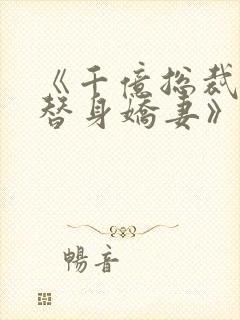 《千億總裁
替身嬌妻》
暢音